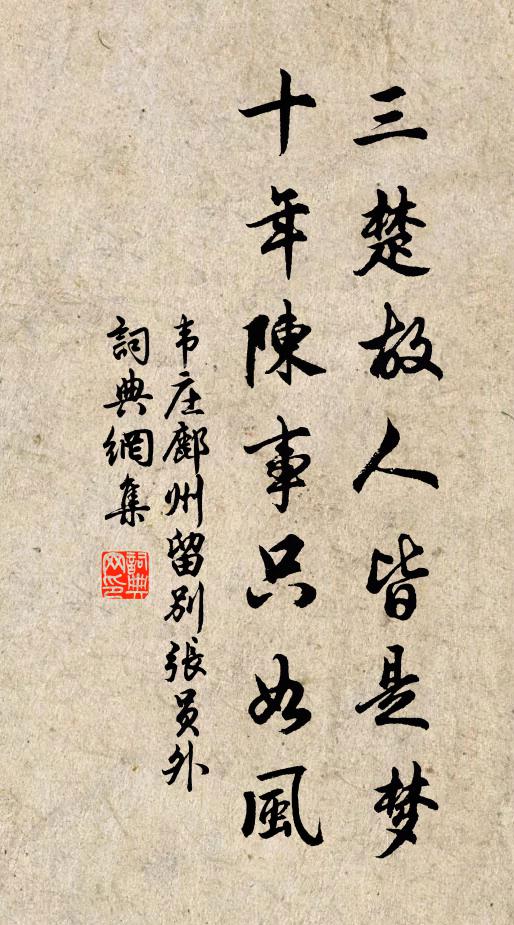 三楚故人皆是梦
十年陳事只如風
韦庄鄜州留别張员外
詞典網集
詞典网印